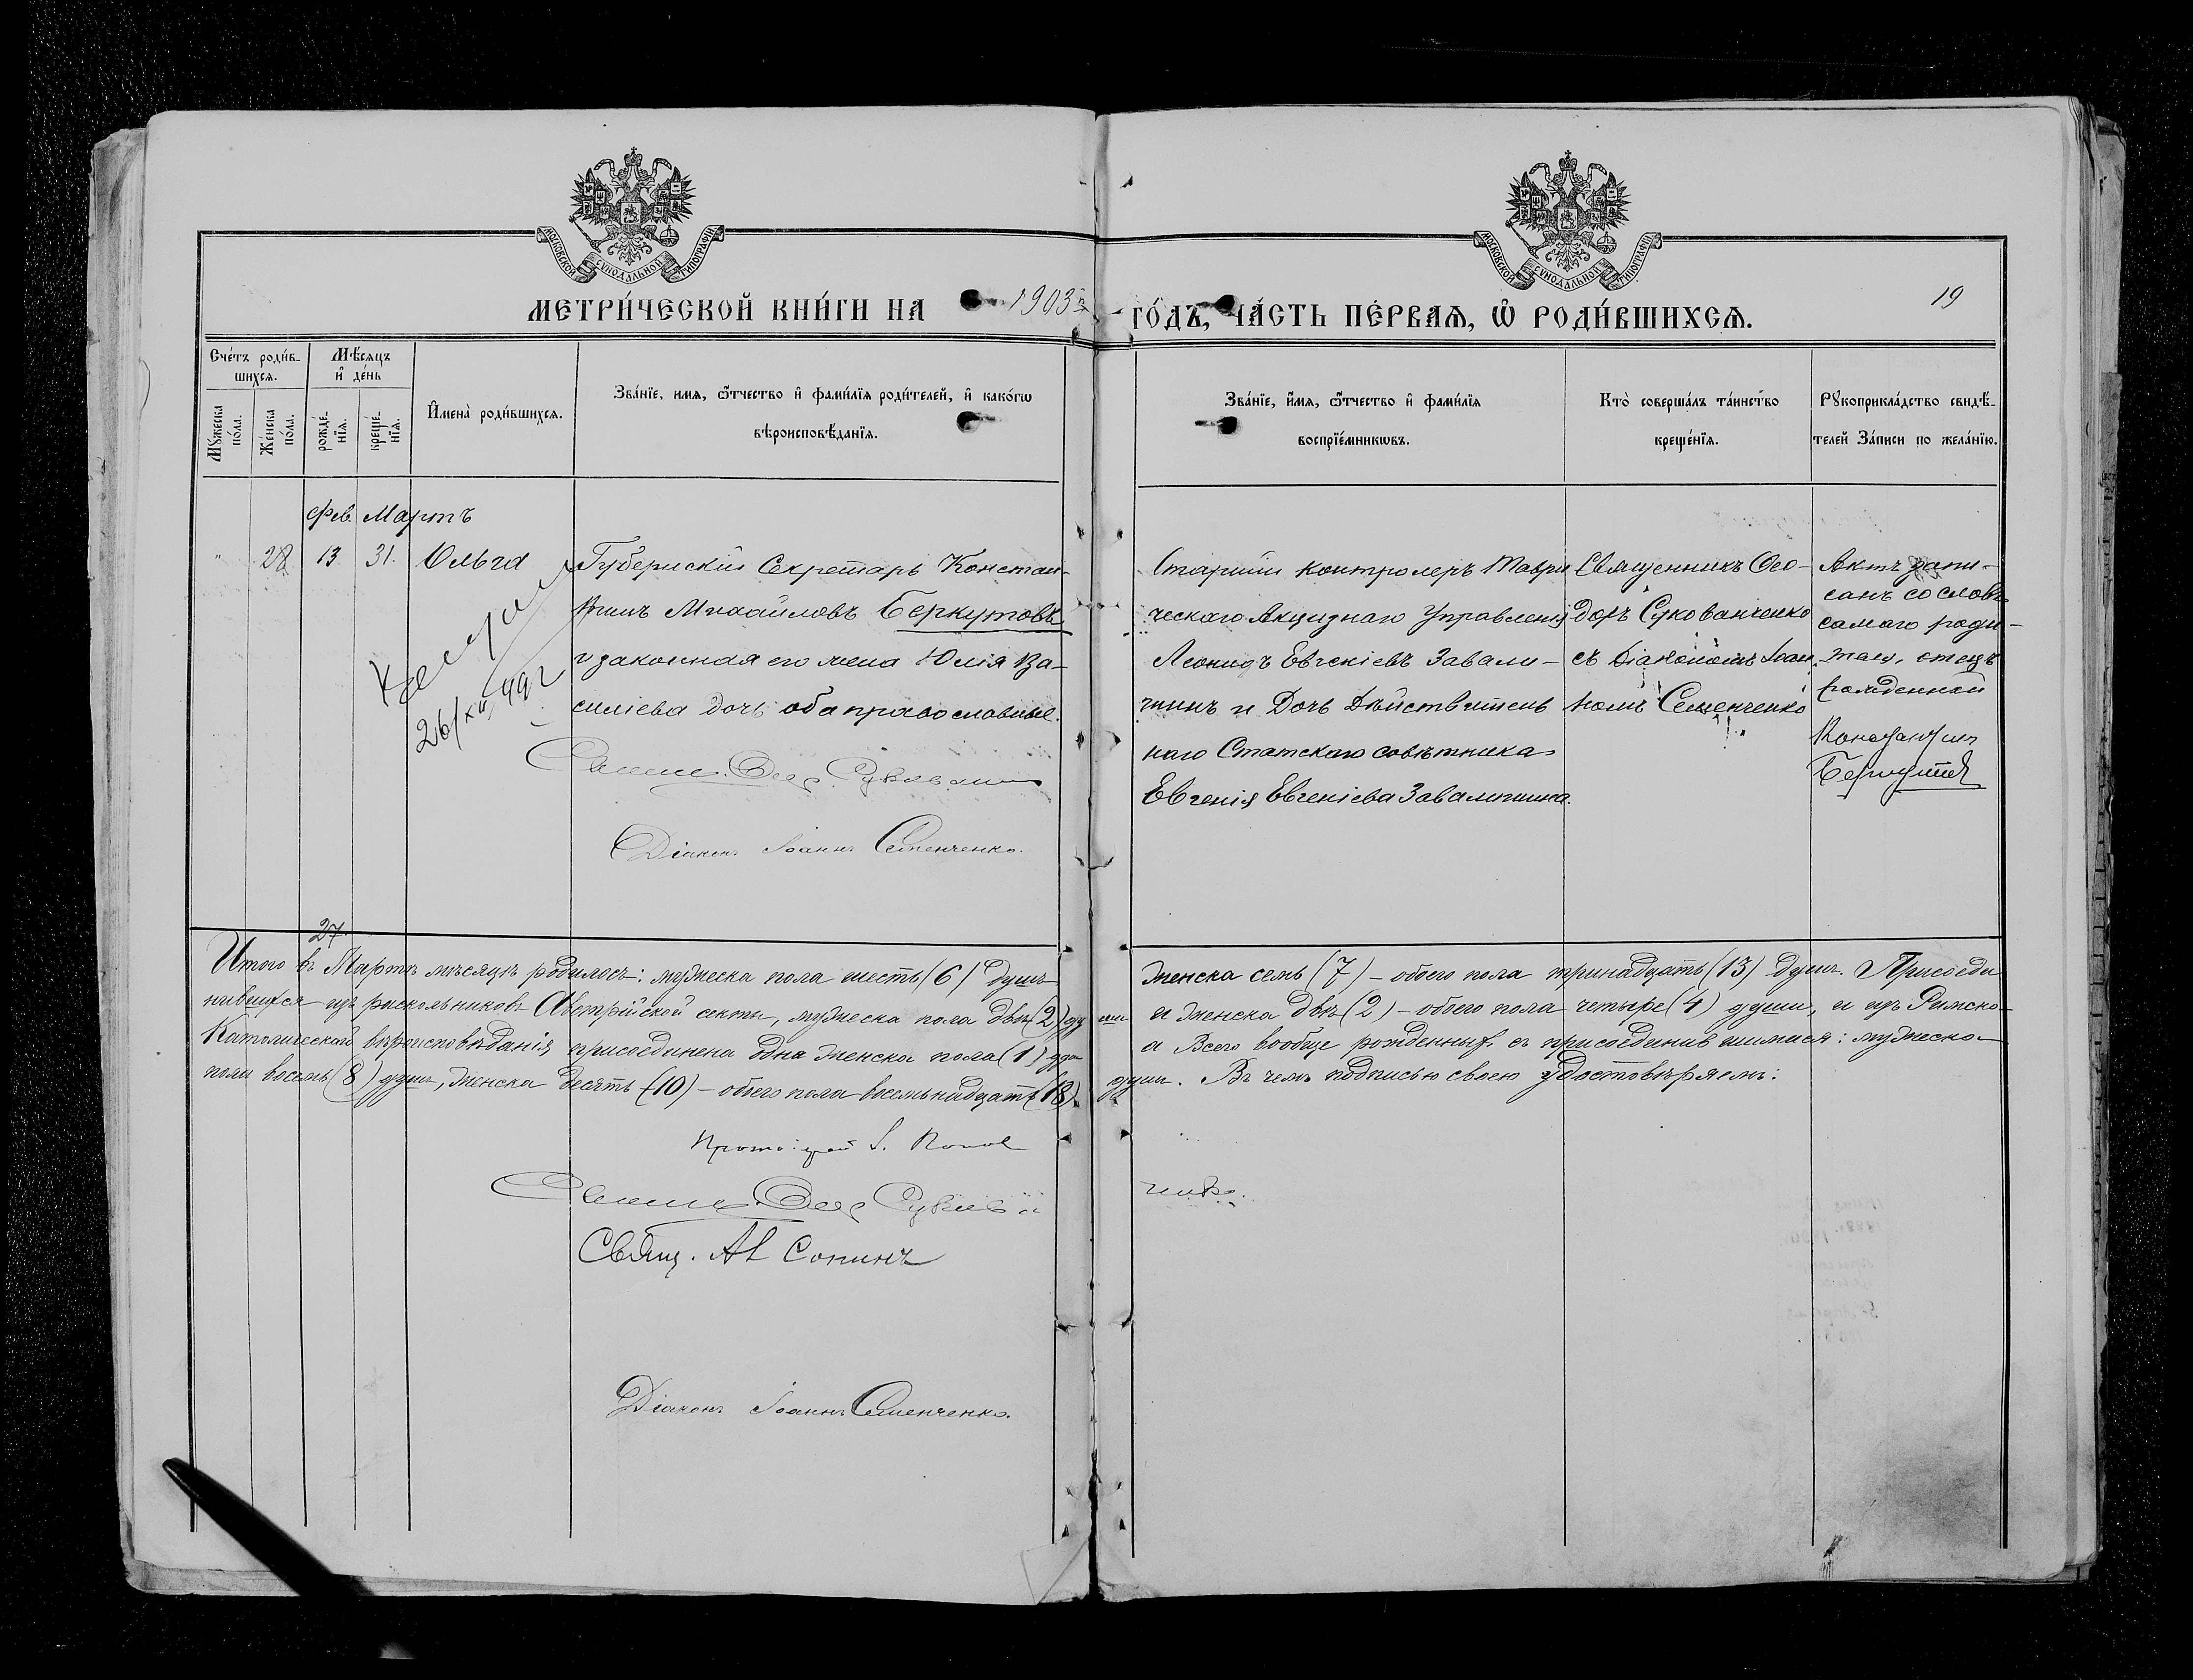 МОСКОВСКОЙ СУНОДАЛЬНОЙ ТИПОГРАФІИ
МОСКОВСКОЙ СУНОДАЛЬНОЙ ТИПОГРАФІИ
МЕТРИ́ЧЕСКОЙ КНИ́ГИ НА 1903 ГО́ДЪ, ЧА́СТЬ ПЕ́РВАѦ, Ѡ РОДИ́ВШИХСѦ.
19
Сче́тъ роди́в-
шихсѧ.
Мꙋ́жеска
по́ла.
Же́нска
по́ла.
Мѣ́сѧцъ
и҆ де́нь
рожде́-
нїѧ.
креще́-
нїѧ.
И҆мена̀ роди́вшихсѧ.
Зва́нїе, имѧ, ѻ҆́тчество и҆ фами́лїѧ роди́телей, и҆ како́гѡ
вѣроисповѣ́данїѧ.
Зва́нїе, и҆́мѧ, ѻ҆́тчество и҆ фами́лїѧ
воспрїе́мникѡвъ.
Кто̀ соверша́лъ та́инство
креще́нїѧ.
Рꙋкоприкла́дство свидѣ́-
телей За́писи по жела́нїю.
Фев. Мартъ
" 28 13 31. Ольга
Губернскій Секретарь Констан-
тинъ Михайловъ Беркутовъ
и законная его жена Юлія Ва-
силіева дочь оба православные.
26/XII 49 г
Діаконъ Іоаннъ Семенченко.
Старшій контролеръ Таври
ческаго Акцизнаго Управленія
Леонидъ Евгеніевъ Завали-
шинъ и Дочь Дѣйствитель
наго Статскаго совѣтника
Евгенія Евгеніева Завалишина.
Священникъ Ѳео-
доръ Сукованченко
съ діакономъ Іоан
номъ Семенченко
Актъ запи-
санъ со словъ
самаго роди-
теля, отецъ
рожденной
Константин
Беркутов
27
Итого въ Мартѣ мѣсяцѣ родилось: мужеска пола шесть (6) душъ женска семь (7) - обоего пола тринадцать (13) душъ. Присоеди
нившихся изъ раскольниковъ Австрійской секты, мужеска пола двѣ (2) души и женска двѣ (2) - обоего пола четыре (4) души, и изъ Римско-
Католическаго вѣроисповѣданія присоединена одна женска пола (1) душа а Всего вообще рожденныхъ съ присоединившимися: мужеска
пола восемь (8) душъ, женска десять (10) - обоего пола восемьнадцать (18) душъ. Въ чемъ подписью своею удостовѣряемъ:
Протоіерей І. Попов
Свящ. Ал Сопинъ
Діаконъ Іоаннъ Семенченко.